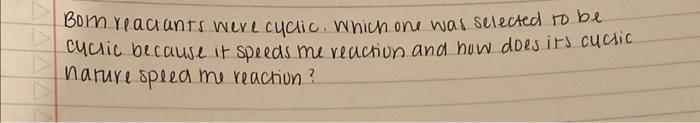 Both reactants were cyclic. Which one was selected to be
cyclic because it speeds the reaction and how does its cyclic
nature speed the reaction?